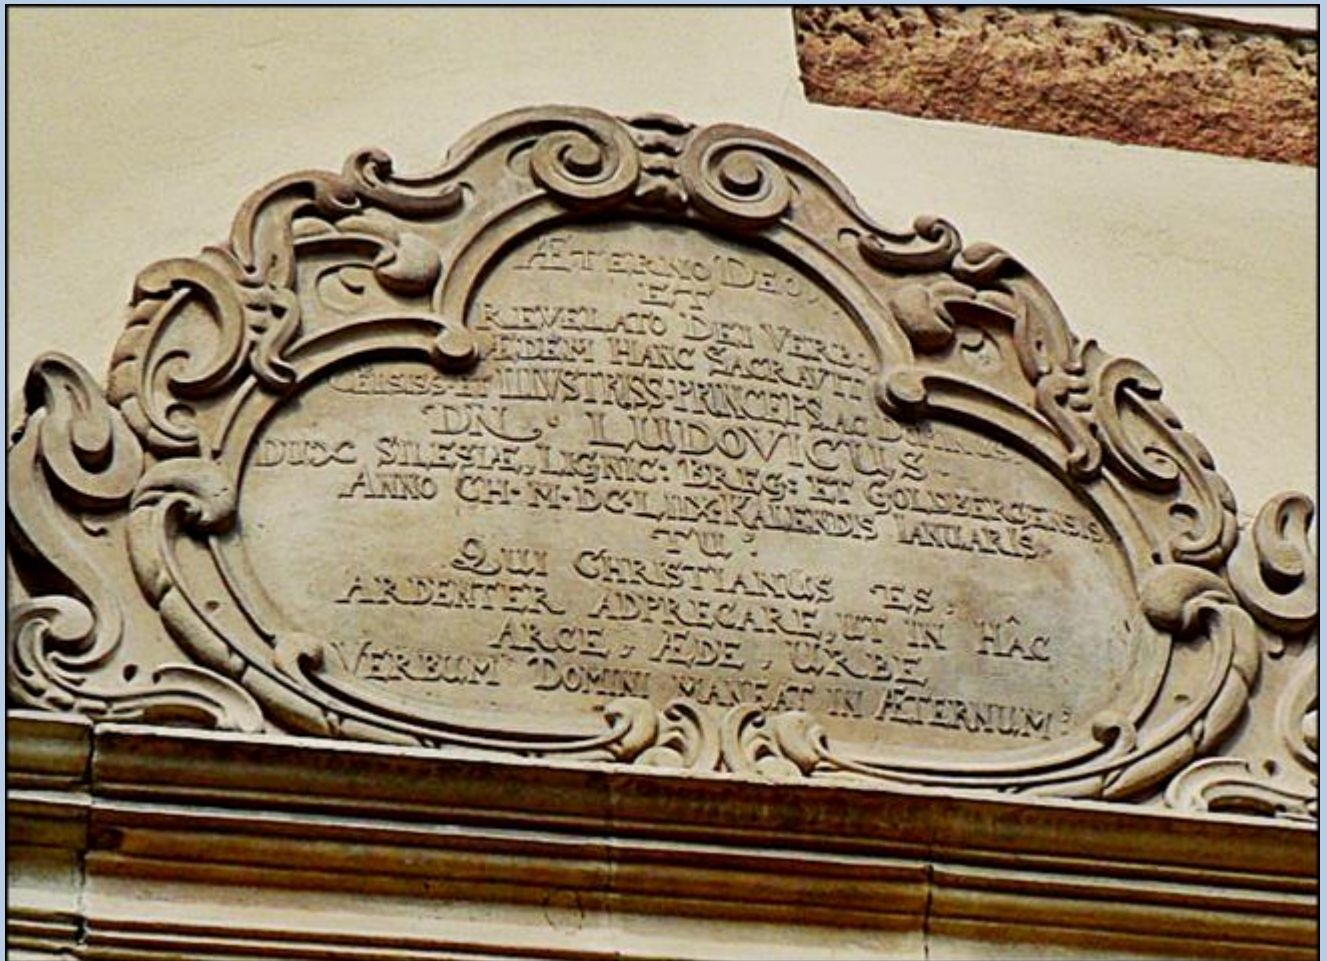 ÆTERNO DEO,
ET
REVELATO DEI VERB:
ÆDEM HANC SACRAVIT
CELSISS· ET ILLUSTRISS· PRINCEPS AC DOMINUS·
DN· LUDOVICUS·
DUX SILESIÆ, LIGNIC: BREG: ET GOLDBERGENSIS
ANNO CH· M·DC·LIIX·KALENDIS IANUARIS
TU:
QUI CHRISTIANUS ES,
ARDENTER ADPRECARE, UT IN HÂC
ARCE, ÆDE, URBE
VERBUM DOMINI MANEAT IN ÆTERNUM: